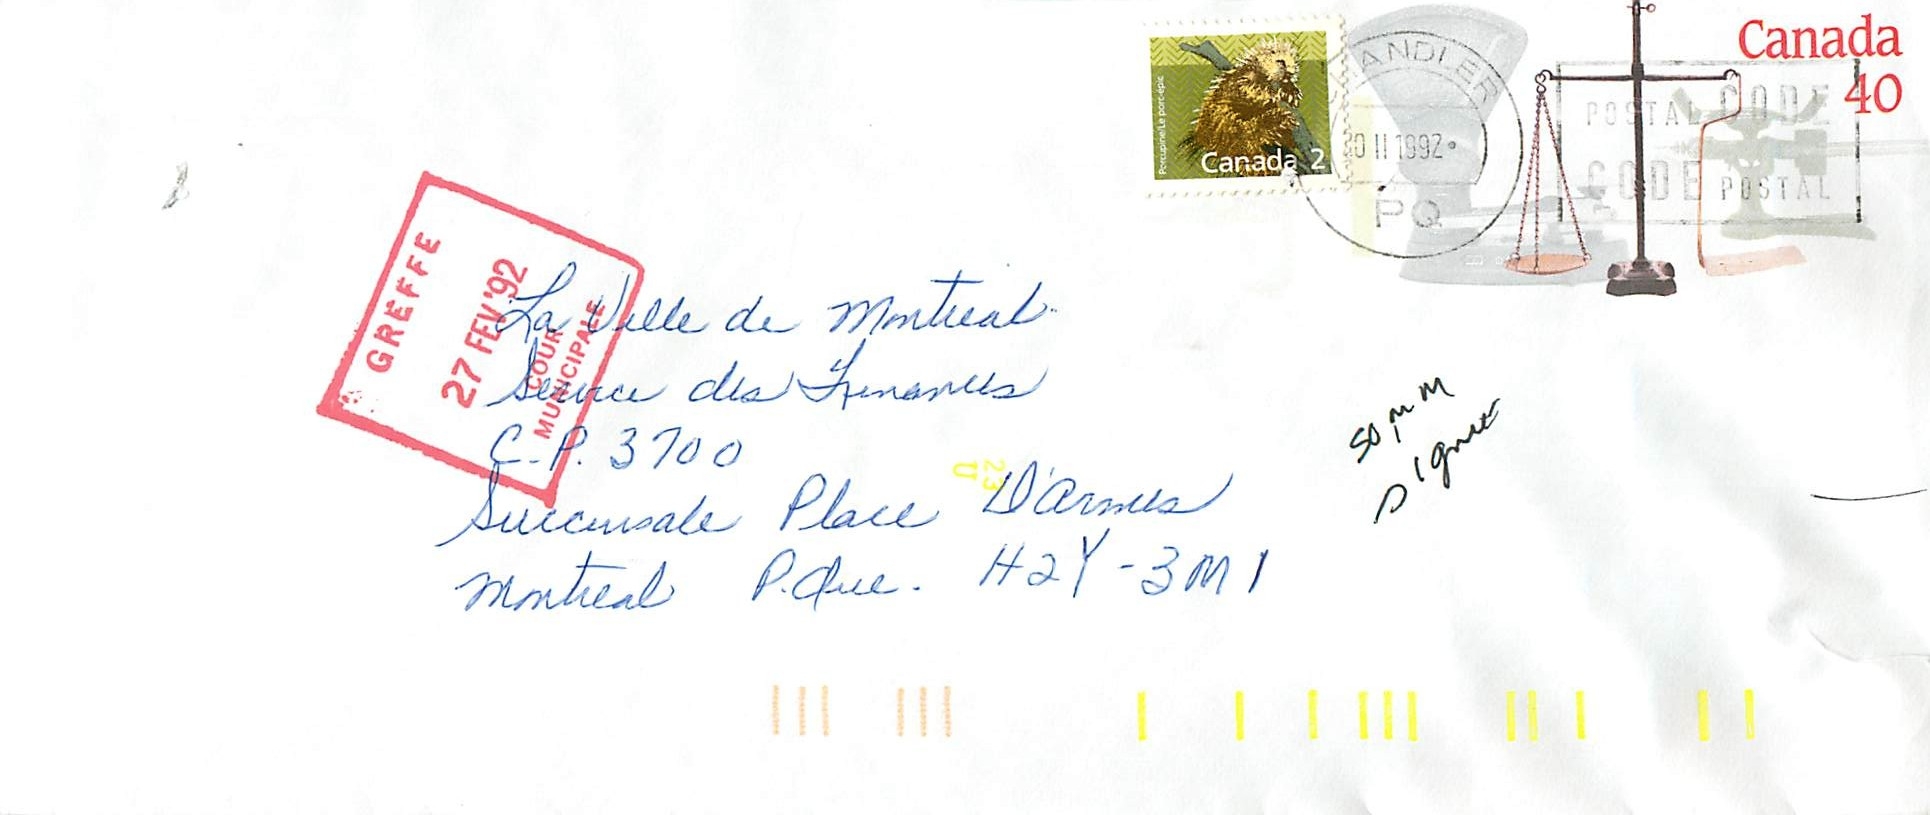 Canada
40
Porcupine/Le porc-épic
Canada 2
CHANDLER
20 II 1992
PQ
POSTAL CODE
CODE POSTAL
GREFFE
27 FEV '92
COUR
MUNICIPALE
La Ville de Montreal
Service des Finances
C.P. 3700
Succursale Place D'Armes
Montreal P.Que. H2Y-3M1
23
U
50